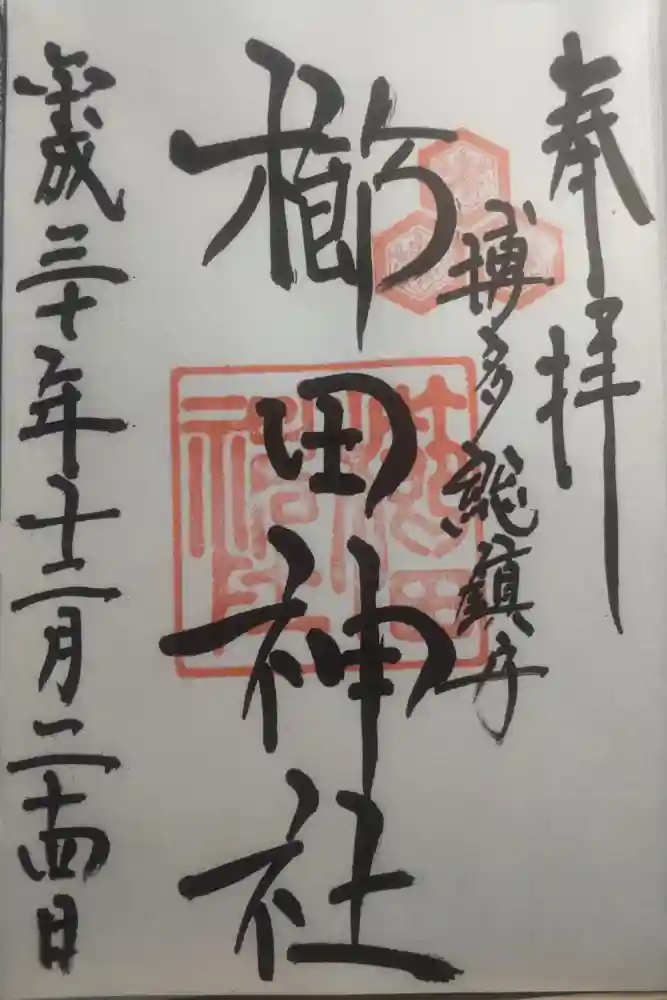 奉拝
博多総鎮守
櫛田神社
平成三十年十二月二十四日
櫛田神社